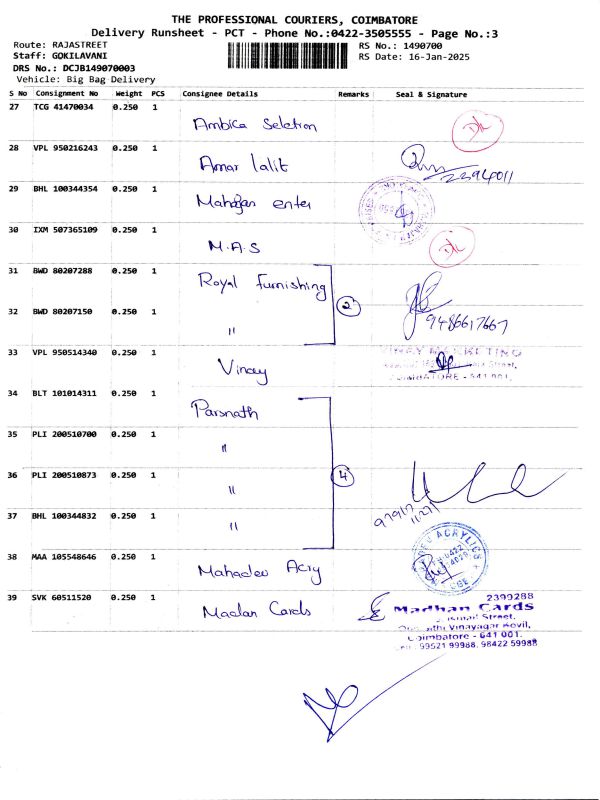 THE PROFESSIONAL COURIERS, COIMBATORE
Delivery Runsheet - PCT - Phone No.:0422-3505555 - Page No.:3
Route: RAJASTREET
Staff: GOKILAVANI
DRS No.: DCJB149070003
Vehicle: Big Bag Delivery
RS No.: 1490700
RS Date: 16-Jan-2025
S No Consignment No Weight PCS Consignee Details Remarks Seal & Signature
27 TCG 41470034 0.250 1
Ambica Selction
28 VPL 950216243 0.250 1
Amar lalit
2394011
29 BHL 100344354 0.250 1
Mahajan enter
30 IXM 507365109 0.250 1
M.A.S
31 BWD 80207288 0.250 1
Royal Furnishing
2
32 BWD 80207150 0.250 1
"
9486617667
33 VPL 950514340 0.250 1
Vinay
VINAY MARKETING
COIMBATORE - 641 001.
34 BLT 101014311 0.250 1
Parsnath
35 PLI 200510700 0.250 1
"
36 PLI 200510873 0.250 1
"
4
37 BHL 100344832 0.250 1
"
38 MAA 105548646 0.250 1
Mahadev Acry
ACRYLICS
CBE
39 SVK 60511520 0.250 1
Madan Cards
2399288
Madhan Cards
Street,
Vinayagar Kovil,
Coimbatore - 641 001.
99521 99988, 98422 59988